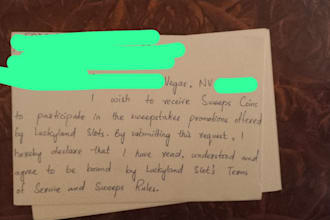 Vegas, NV
I wish to receive Sweeps Coins
to participate in the sweepstakes promotions offered
by Luckyland Slots. By submitting this request, I
hereby declare that I have read, understood and
agree to be bound by Luckyland Slot's Terms
of Service and Sweeps Rules.